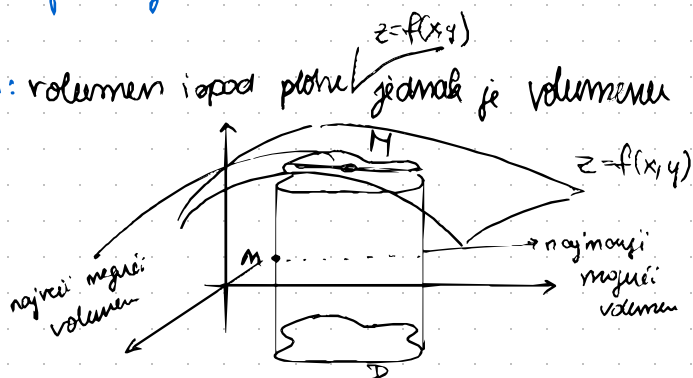 z=f(x,y)
: volumen ispod plohe jednak je volumenu
M
z=f(x,y)
m
najmanji
mogući
volumen
najveći mogući
volumen
D